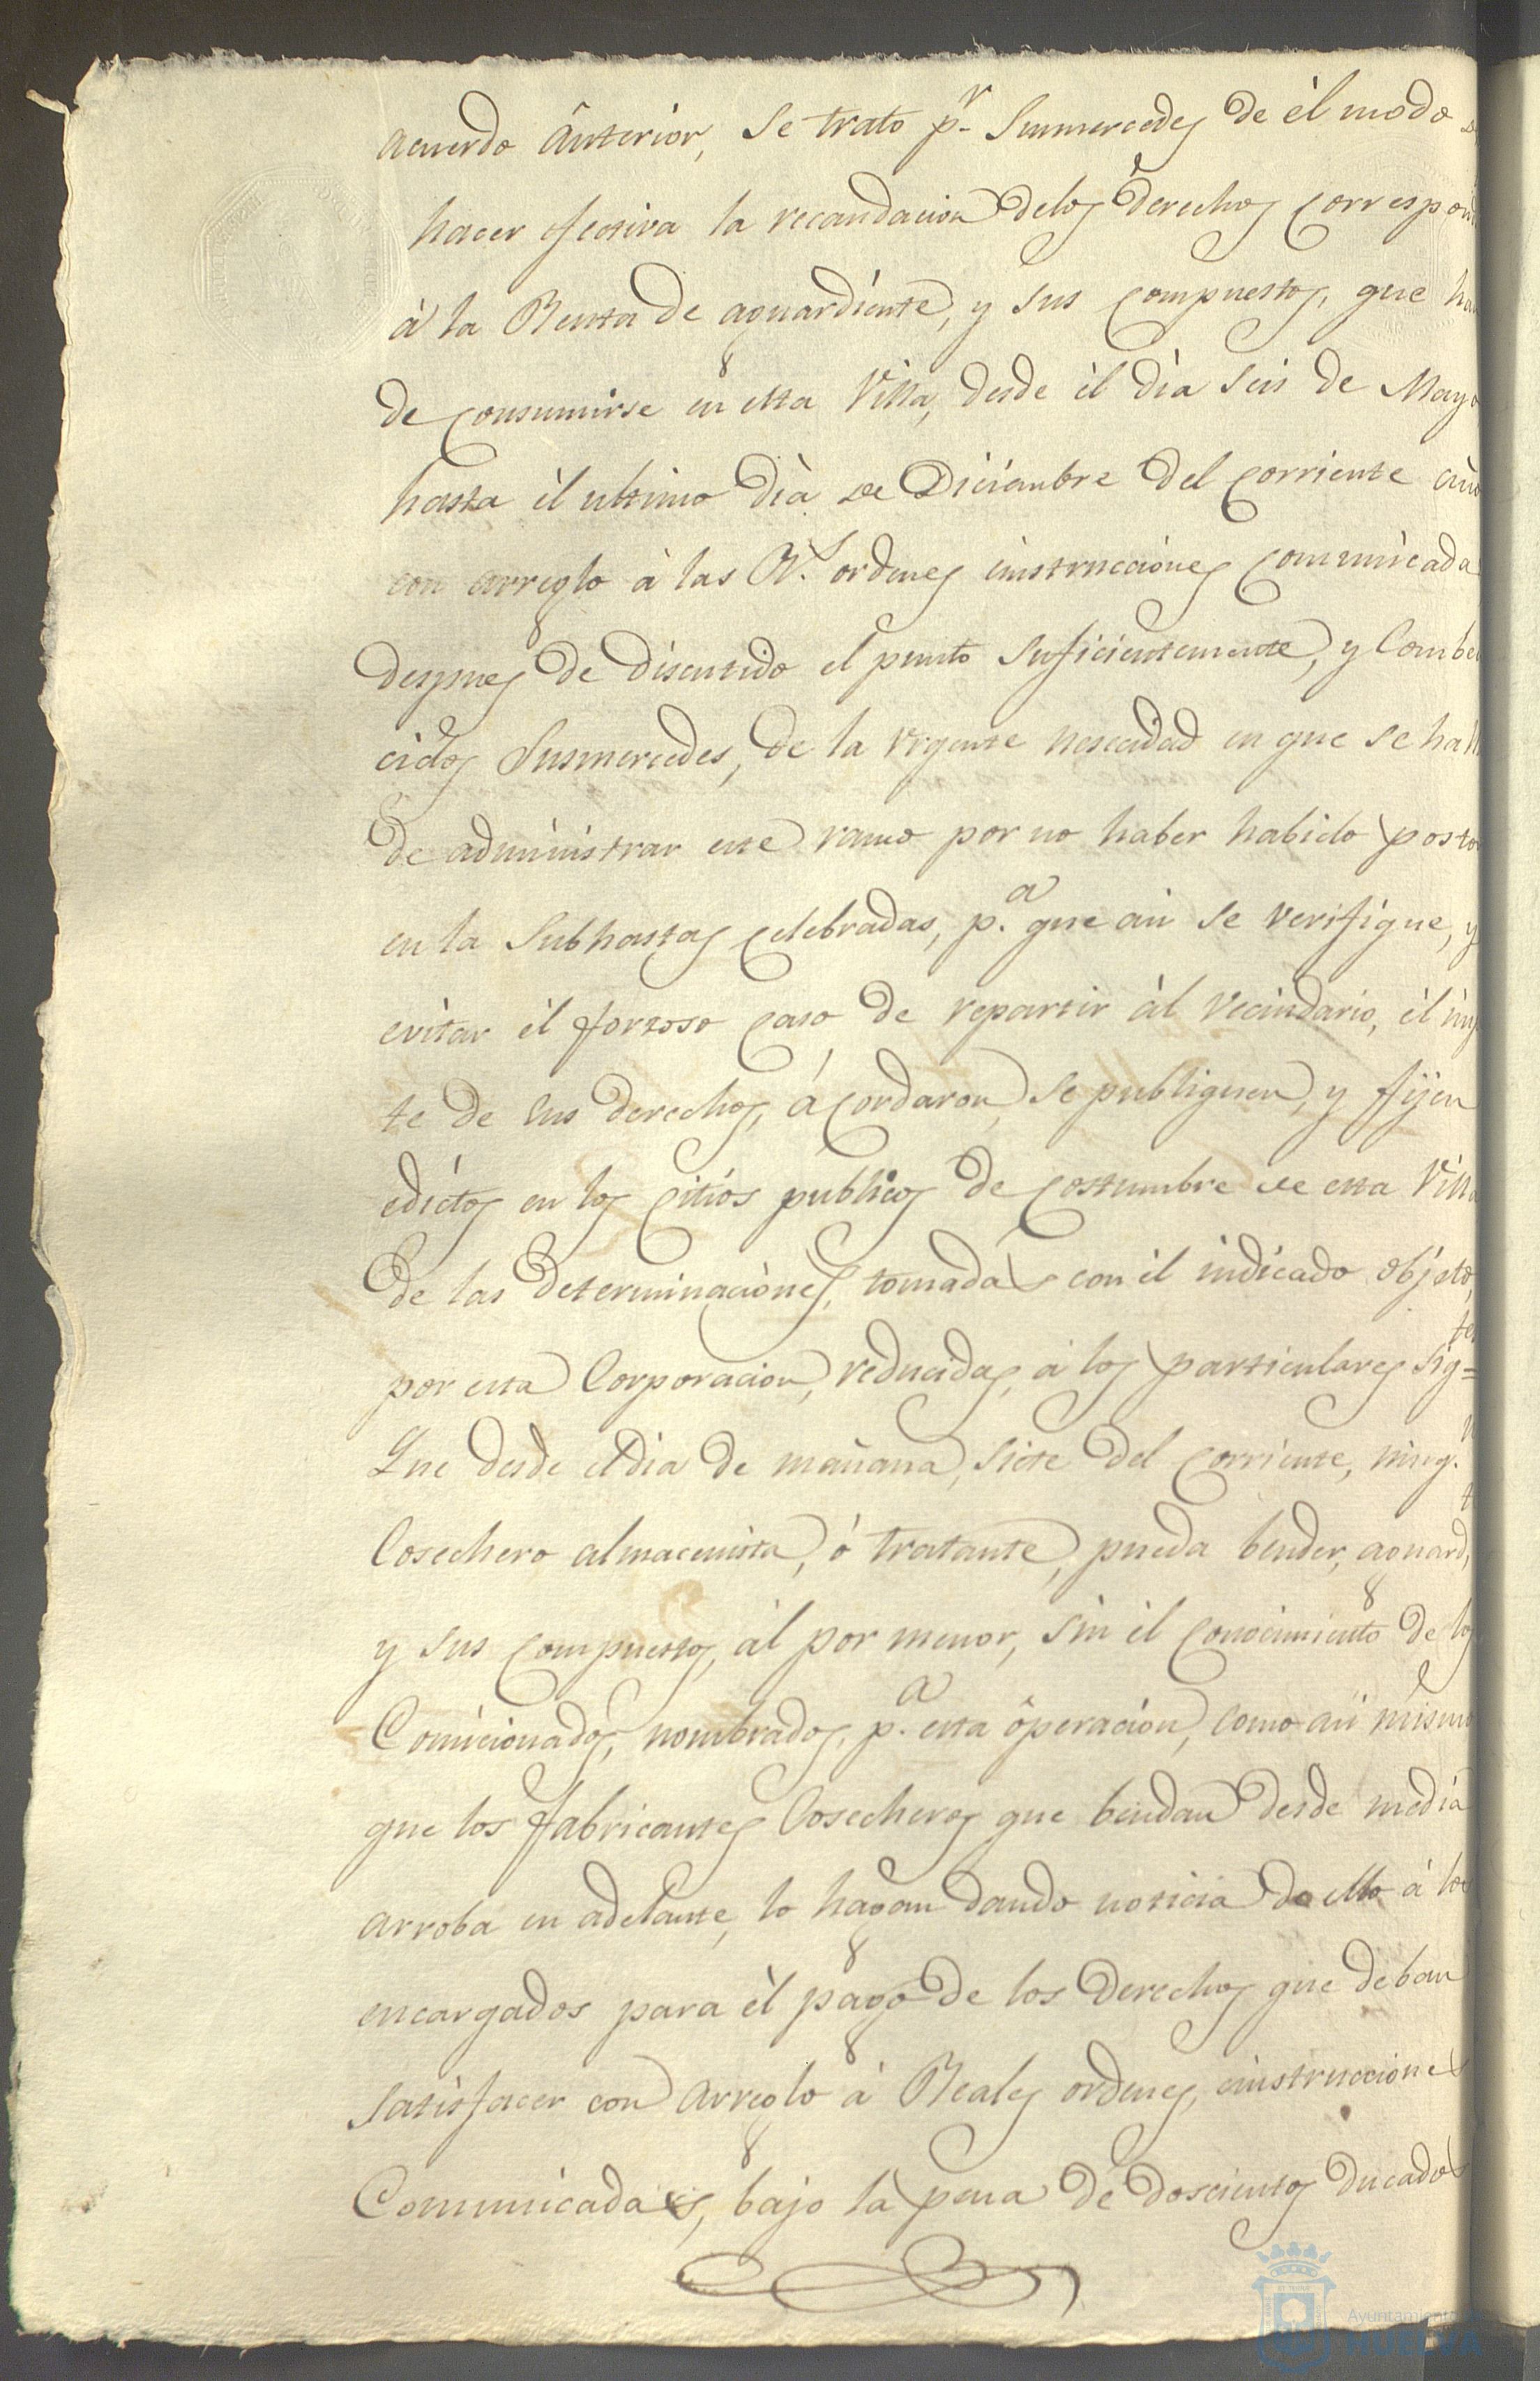 acuerdo ânterior, Se trato p.r Susmercedes de èl modo
hacer efectiva la recaudacion delos derechos Correspond
à la Renta de aguardiente, y Sus Compuestos, que ha
de Consumirse en esta Villa, desde èl dia Seis de Mayo
hasta èl ultimo dia de Diciembre del Corriente año
con arreglo à las R.s ordenes einstrucciones Comunicada
Despues de Discutido el punto Suficientemente, y Combe
cidos Susmercedes, de la Urgente nesecidad en que se hall
de administrar este ramo por no haber habido posto
en la Subhastas Celebradas, p.a que asi Se Verifique, y
evitar èl forzoso Caso de repartir àl Vecindario, èl imp
te de sus derechos, áCordaron Se publiquen, y fijen
edictos en los Citios publicos de Costumbre de esta Villa
de las Determinaciones, tomadas con èl indicado Objeto,
por esta Corporacion, reducidas, à los particulares Sig=tes
Que desde eldia de mañana, Siete del Corriente, ning.n
Cosechero almacenista, ó tratante, pueda bender, aguard.te
y Sus Compuestos, àl por menor, Sin èl Conocimiento de los
Comicionados, nombrados, p.a esta ôperacion, Como asi mismo
que los fabricantes Cosecheros que bendan desde media
arroba en adelante, lo hagan dando noticia de ello à los
encargados para èl pago de los Derechos que deban
Satisfacer con Arreglo à Reales ordenes, einstrucciones
Comunicadas, bajo la pena de doscientos Ducados
Ayuntamiento de
HUELVA